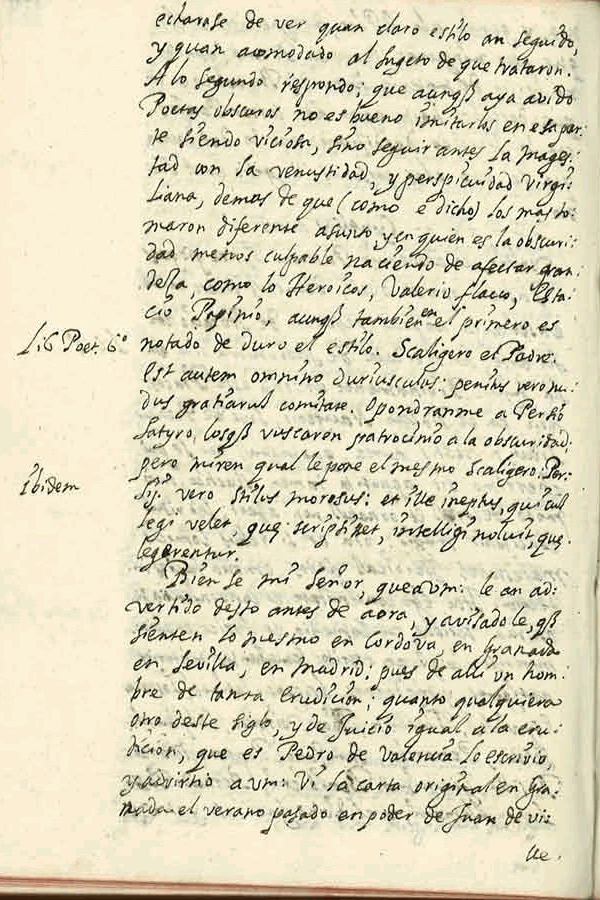 echarase de ver quan claro estilo an seguido,
y quan acomodado al sugeto de que trataron.
A lo segundo respondo; que aunqȝ aya avido
Poetas obscuros no es bueno imitarlos en esa par:
te siendo viciosa, sino seguir antes la mages:
tad con la venustidad, y perspicuidad Virgi:
liana, demas de que (como e dicho) los mas to:
maron diferente asunto, y en quien es la obscuri:
dad menos culpable naciendo de afectar gran:
deza, como lo Heroicos, Valerio flacco, Esta:
cio Papinio, aunqȝ tambien en el primero es
Lib Poet. 6º notado de duro el estilo. Scaligero el Padre.
Est autem omnino duriusculus: penitus vero nu:
dus gratiarum comitate. Opondranme a Persio
satyro, los qȝ vuscaren patrocinio a la obscuridad,
pero miren qual le pone el mesmo Scaligero. Per:
Ibidem sij. vero stilus morosus: et ille ineptus, qui cum
legi velet, quę scripsisset, intelligi noluit, quę
legerentur.
Bien se mi señor, que a vm: le an ad:
vertido desto antes de aora, y avisadole, qȝ
sienten lo mesmo en Cordova, en Granada
en Sevilla, en Madrid; pues de alli un hom:
bre de tanta erudicion; quanto qualquiera
otro deste siglo, y de Juicio igual a la eru:
dicion, que es Pedro de Valencia lo escrivio,
y advirtio a vm: Vi la carta original en Gra:
nada el verano pasado en poder de Juan de vi:
lle.